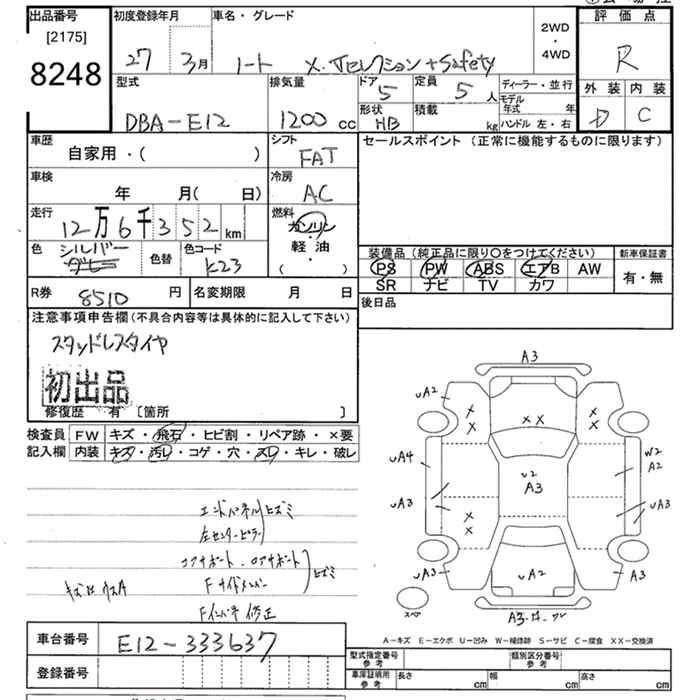 出品番号
[2175]
8248
初度登録年月
27 3月
車名・グレード
ノート X.Vセレクション+Safety
2WD
・
4WD
評価点
R
外装 内装
D C
型式
DBA-E12
排気量
1200 cc
ドア
5
定員
5 人
形状
HB
積載
kg
ディーラー・並行
モデル年式 年
ハンドル 左・右
車歴
自家用・( )
シフト
FAT
車検
年 月( 日)
冷房
AC
走行
12万6千352 km
燃料
ガソリン
・
軽油
( ・ )
色
シルバー
グレー
色替
色コード
K23
セールスポイント (正常に機能するものに限ります)
装備品 (純正品に限り〇をつけてください)
PS PW ABS エアB AW
SR ナビ TV カワ
新車保証書
有・無
後日品
R券 8510 円
名変期限 月 日
注意事項申告欄(不具合内容等は具体的に記入して下さい)
スタッドレスタイヤ
初出品
修復歴 有 [箇所 ]
検査員 FW キズ・飛石・ヒビ割・リペア跡・×要
記入欄 内装 キズ・汚レ・コゲ・穴・スレ・キレ・破レ
エンドパネルヒズミ
左センターピラー
コアサポート・ロアサポート
Fサイドメンバー ヒズミ
Fインパネ修正
A3
UA2
××
××
××
UA4
UA3
××
U2
A3
W2
A2
UA3
UA3
UA2
A3
スペア
車台番号 E12-333637
登録番号
A-キズ E-エクボ U-凹み W-補修跡 S-サビ C-腐食 XX-交換済
型式指定番号
参考
類別区分番号
参考
車庫証明用
参考
長さ cm
幅 cm
高さ cm